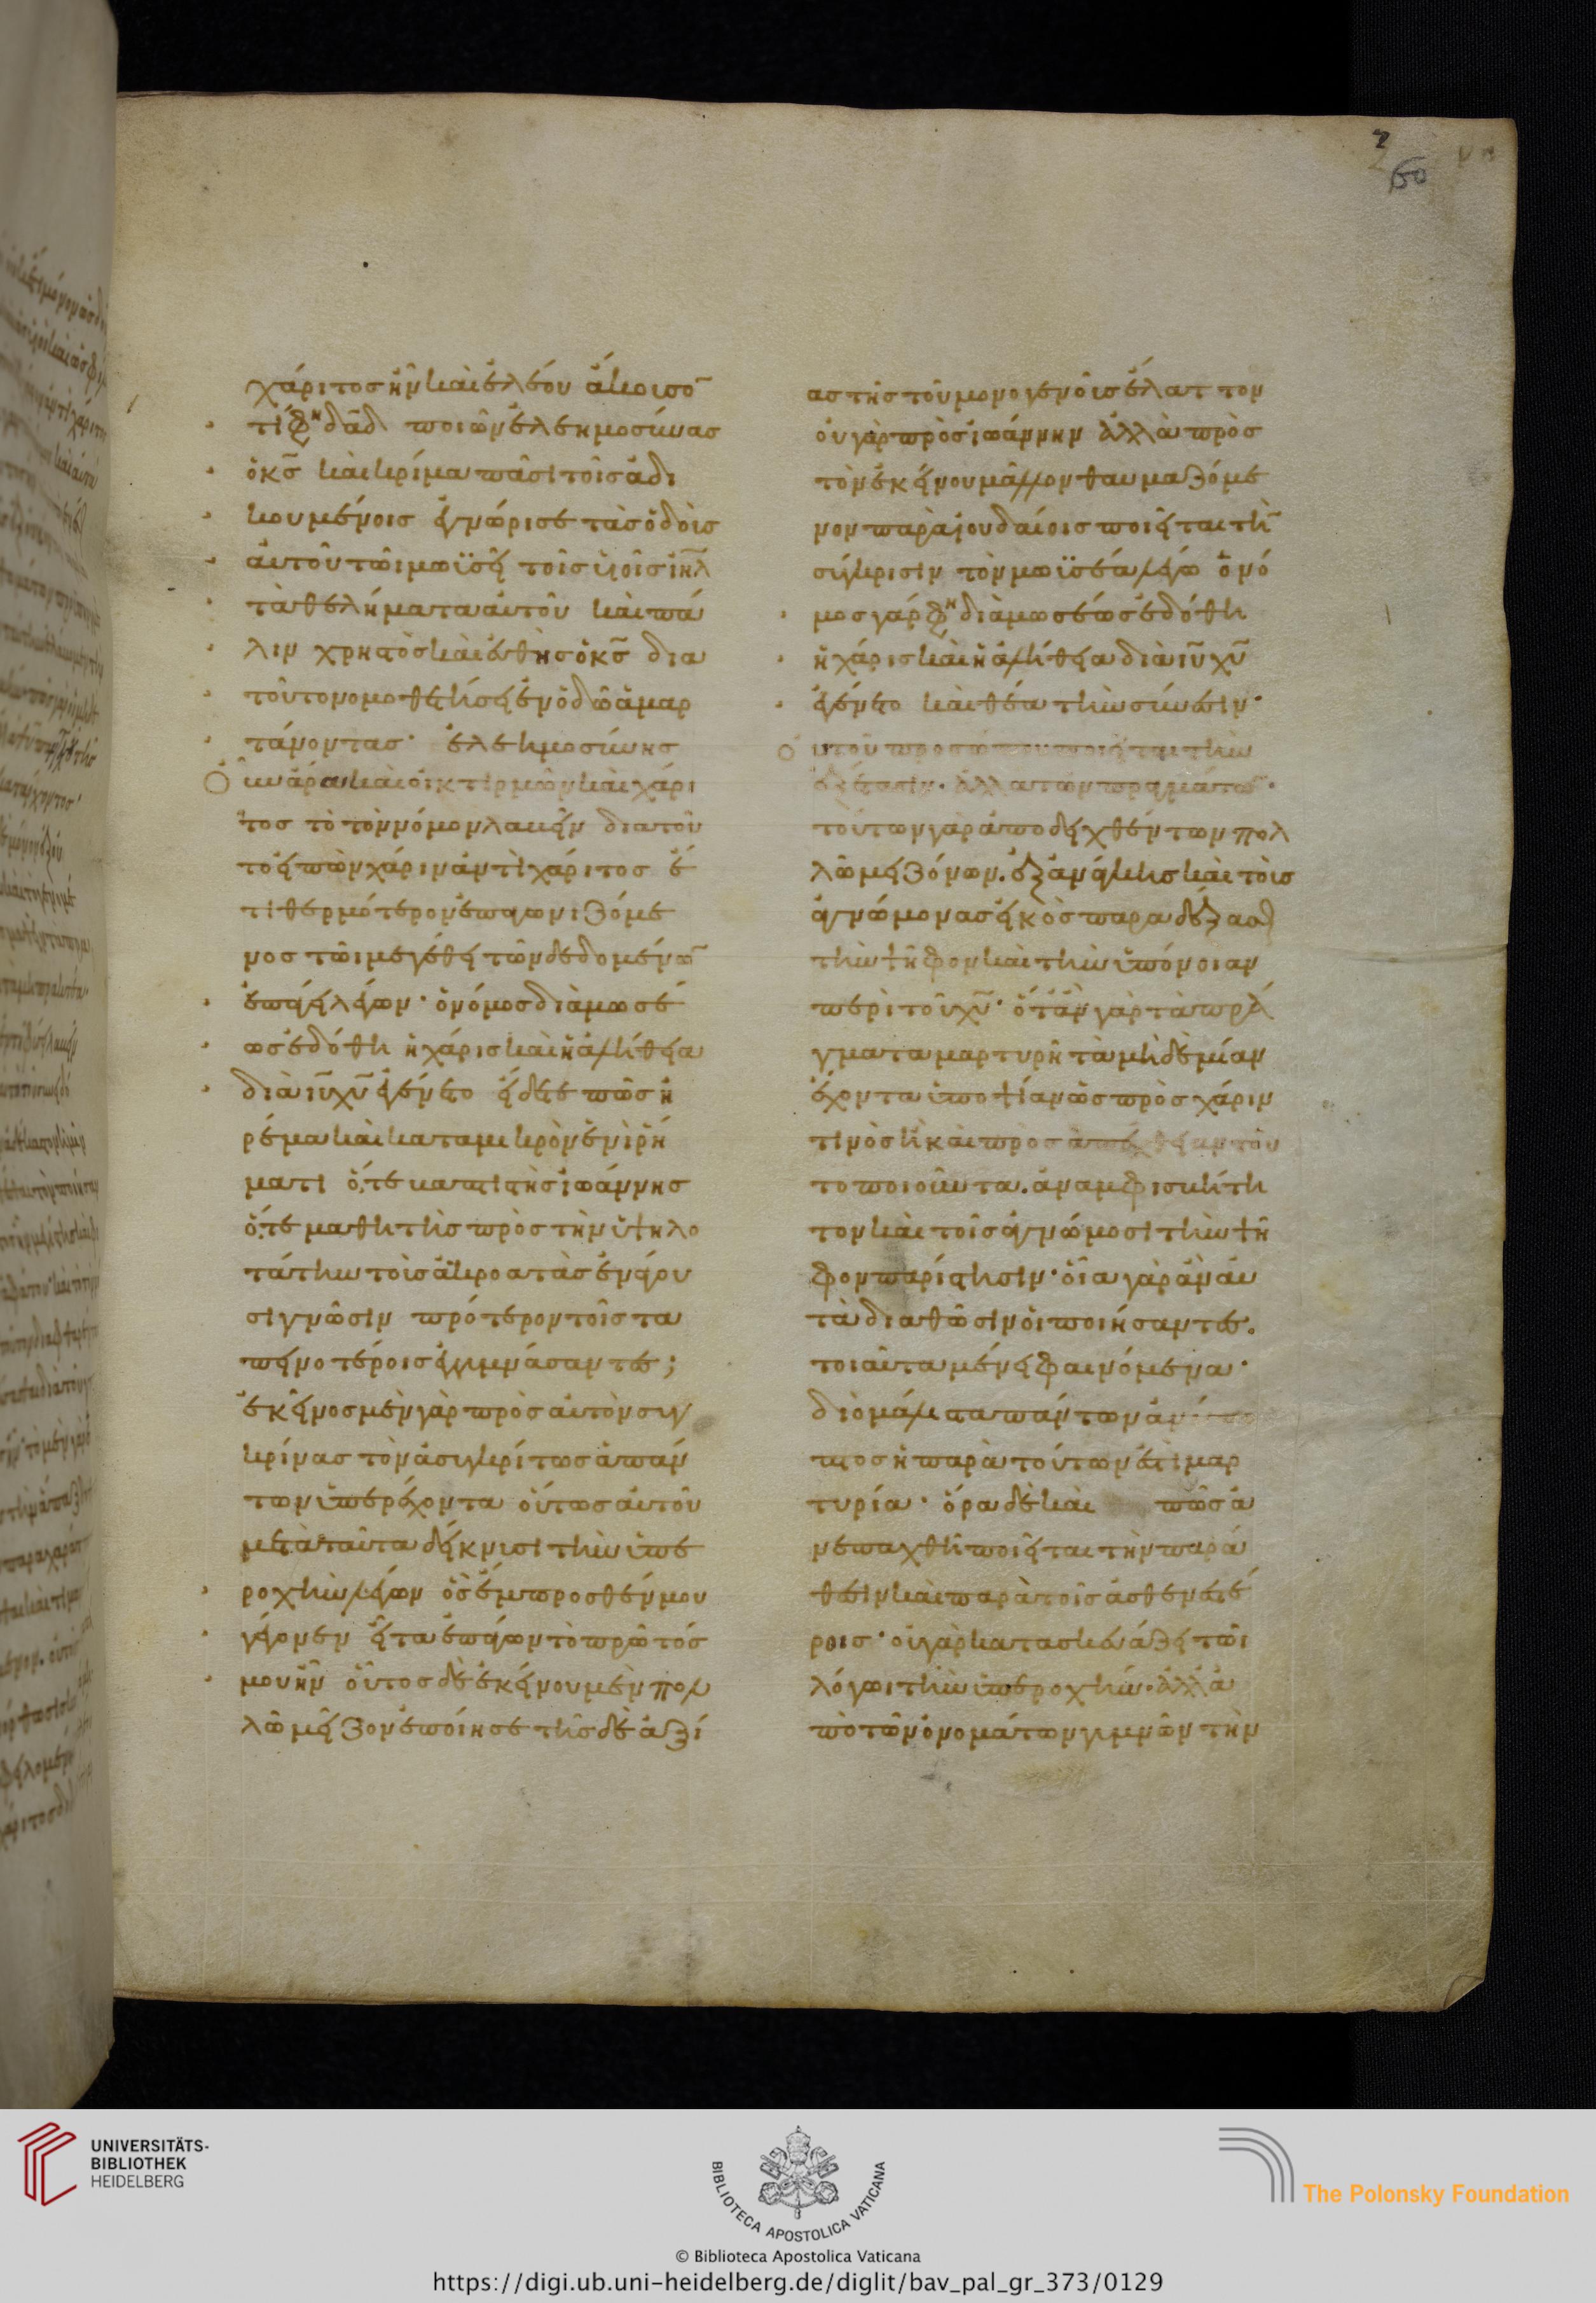 2
50
χάριτος ἦν καὶ ἐλέου ἄκουσο̄
τί φη δᾱδ ποιῶν ἐλεημοσύνας
ὁ κς̄ καὶ κρίμα πᾶσι τοῖς ἀδι
κουμένοις ἐγνώρισε τὰς ὁδοὺς
αὐτοῦ τῶι μωϋσεῖ τοῖς υἱοῖς ιη̄λ
τὰ θελήματα αὐτοῦ καὶ πά
λιν χρηστὸς καὶ εὐθὴς ὁ κς̄ δια
τοῦτο νομοθετήσει ἐν ὁδῶ ἁμαρ
τάνοντας· ἐλεημοσύνης
οὖν ἄρα καὶ οἰκτιρμῶν καὶ χάρι
τος τὸ τὸν νόμον λαβεῖν διατοῦ
το εἰπὼν χάριν ἀντὶ χάριτος ἔ
τι θερμότερον ἐπαγωνιζόμε
νος τῶι μεγέθει τῶν δεδομένω̄
ἐπάγει λέγων· ὁ νόμος διὰ μωσέ
ως ἐδόθη ἡ χάρις καὶ ἡ ἀλήθεια
διὰ ιῡ χῡ ἐγένετο εἴδετε πῶς ἠ
ρέμα καὶ κατα μικρὸν ἑνὶ ῥή
ματι ὅτε βαπτιστὴς ἰωάννης
ὅτε μαθητὴς πρὸς τὴν ὑψηλο
τάτην τοὺς ἀκροατὰς ἐνάγου
σι γνῶσιν πρότερον τοῖς τα
πεινοτέροις ἐγγυμνάσαντες;
ἐκεῖνος μὲν γὰρ πρὸς αὐτὸν συγ
κρίνας τὸν ἀσυγκρίτως ἁπάν
των ὑπερέχοντα οὕτως αὐτοῦ
μετὰ ταῦτα δείκνυσι τὴν ὑπε
ροχὴν λέγων ὃς ἔμπροσθέν μου
γέγονεν εἶτα ἐπάγων τὸ πρῶτός
μου ἦν οὗτος δὲ ἐκείνου μὲν πολ
λῶ μεῖζον ἐποίησε τῆς δὲ ἀξί
ας τῆς τοῦ μονογενοῦς ἔλαττον
οὐ γὰρ πρὸς ἰωάννην ἀλλὰ πρὸς
τὸν ἐκείνου μᾶλλον θαυμαζόμε
νον παρὰ ἰουδαίοις ποιεῖται τὴ̄
σύγκρισιν τὸν μωϋσέα λέγω ὁ νό
μος γάρ φη διὰ μωσέως ἐδόθη
ἡ χάρις καὶ ἡ ἀλήθεια διὰ ιῡ χῡ
ἐγένετο καὶ θέα τὴν σύνεσιν·
οὐ τοῦ προσώπου ποιεῖται τὴν
ἐξέτασιν· ἀλλα τῶν πραγμάτω̄·
τούτων γὰρ ἀποδειχθέντων πολ
λῶ μειζόνων. ἐξ ἀνάγκης καὶ τοὺς
ἀγνώμονας εἰκὸς παραδέξασθαι
τὴν ψῆφον καὶ τὴν ὑπόνοιαν
περὶ τοῦ χῡ· ὅταν γὰρ τὰ πρά
γματα μαρτυρῆ τὰ μηδεμίαν
ἔχοντα ὑποψίαν ὡς πρὸς χάριν
τινὸς ἢ καὶ πρὸς ἀπέχθειαν τοῦ
το ποιοῦντα. ἀναμφισβήτη
τον καὶ τοῖς ἀγνώμοσι τὴν ψῆ
φον παρίστησιν· οἷα γὰρ ἂν αὐ
τὰ διαθῶσιν οἱ ποιήσαντες.
τοιαῦτα μένει φαινόμενα·
διὸ μάλιστα πάντων ἀνύπο
πτος ἡ παρὰ τούτων ἐστὶ μαρ
τυρία· ὅρα δὲ καὶ πῶς ἀ
νεπαχθῆ ποιεῖται τὴν παρά
θεσιν καὶ παρὰ τοῖς ἀσθενεστέ
ροις· οὐ γὰρ κατασκευάζει τῶι
λόγωι τὴν ὑπεροχήν· ἀλλὰ ἀ
πὸ τῶν ὀνομάτων γυμνῶν τὴν
UNIVERSITÄTS-
BIBLIOTHEK
HEIDELBERG
BIBLIOTECA APOSTOLICA VATICANA
The Polonsky Foundation
© Biblioteca Apostolica Vaticana
https://digi.ub.uni-heidelberg.de/diglit/bav_pal_gr_373/0129